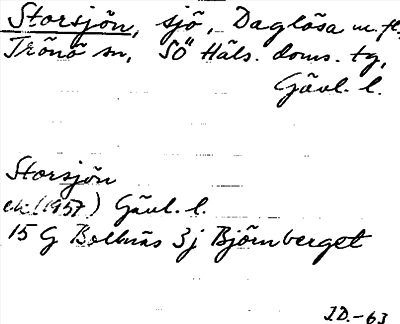 Storsjön, sjö, Daglösa m. fl.,
Trönö sn, SÖ Häls. doms. tg,
Gävl. l.
Storsjön
ek (1957) Gävl. l.
15 G Bollnäs 3j Björnberget
I.D.-63